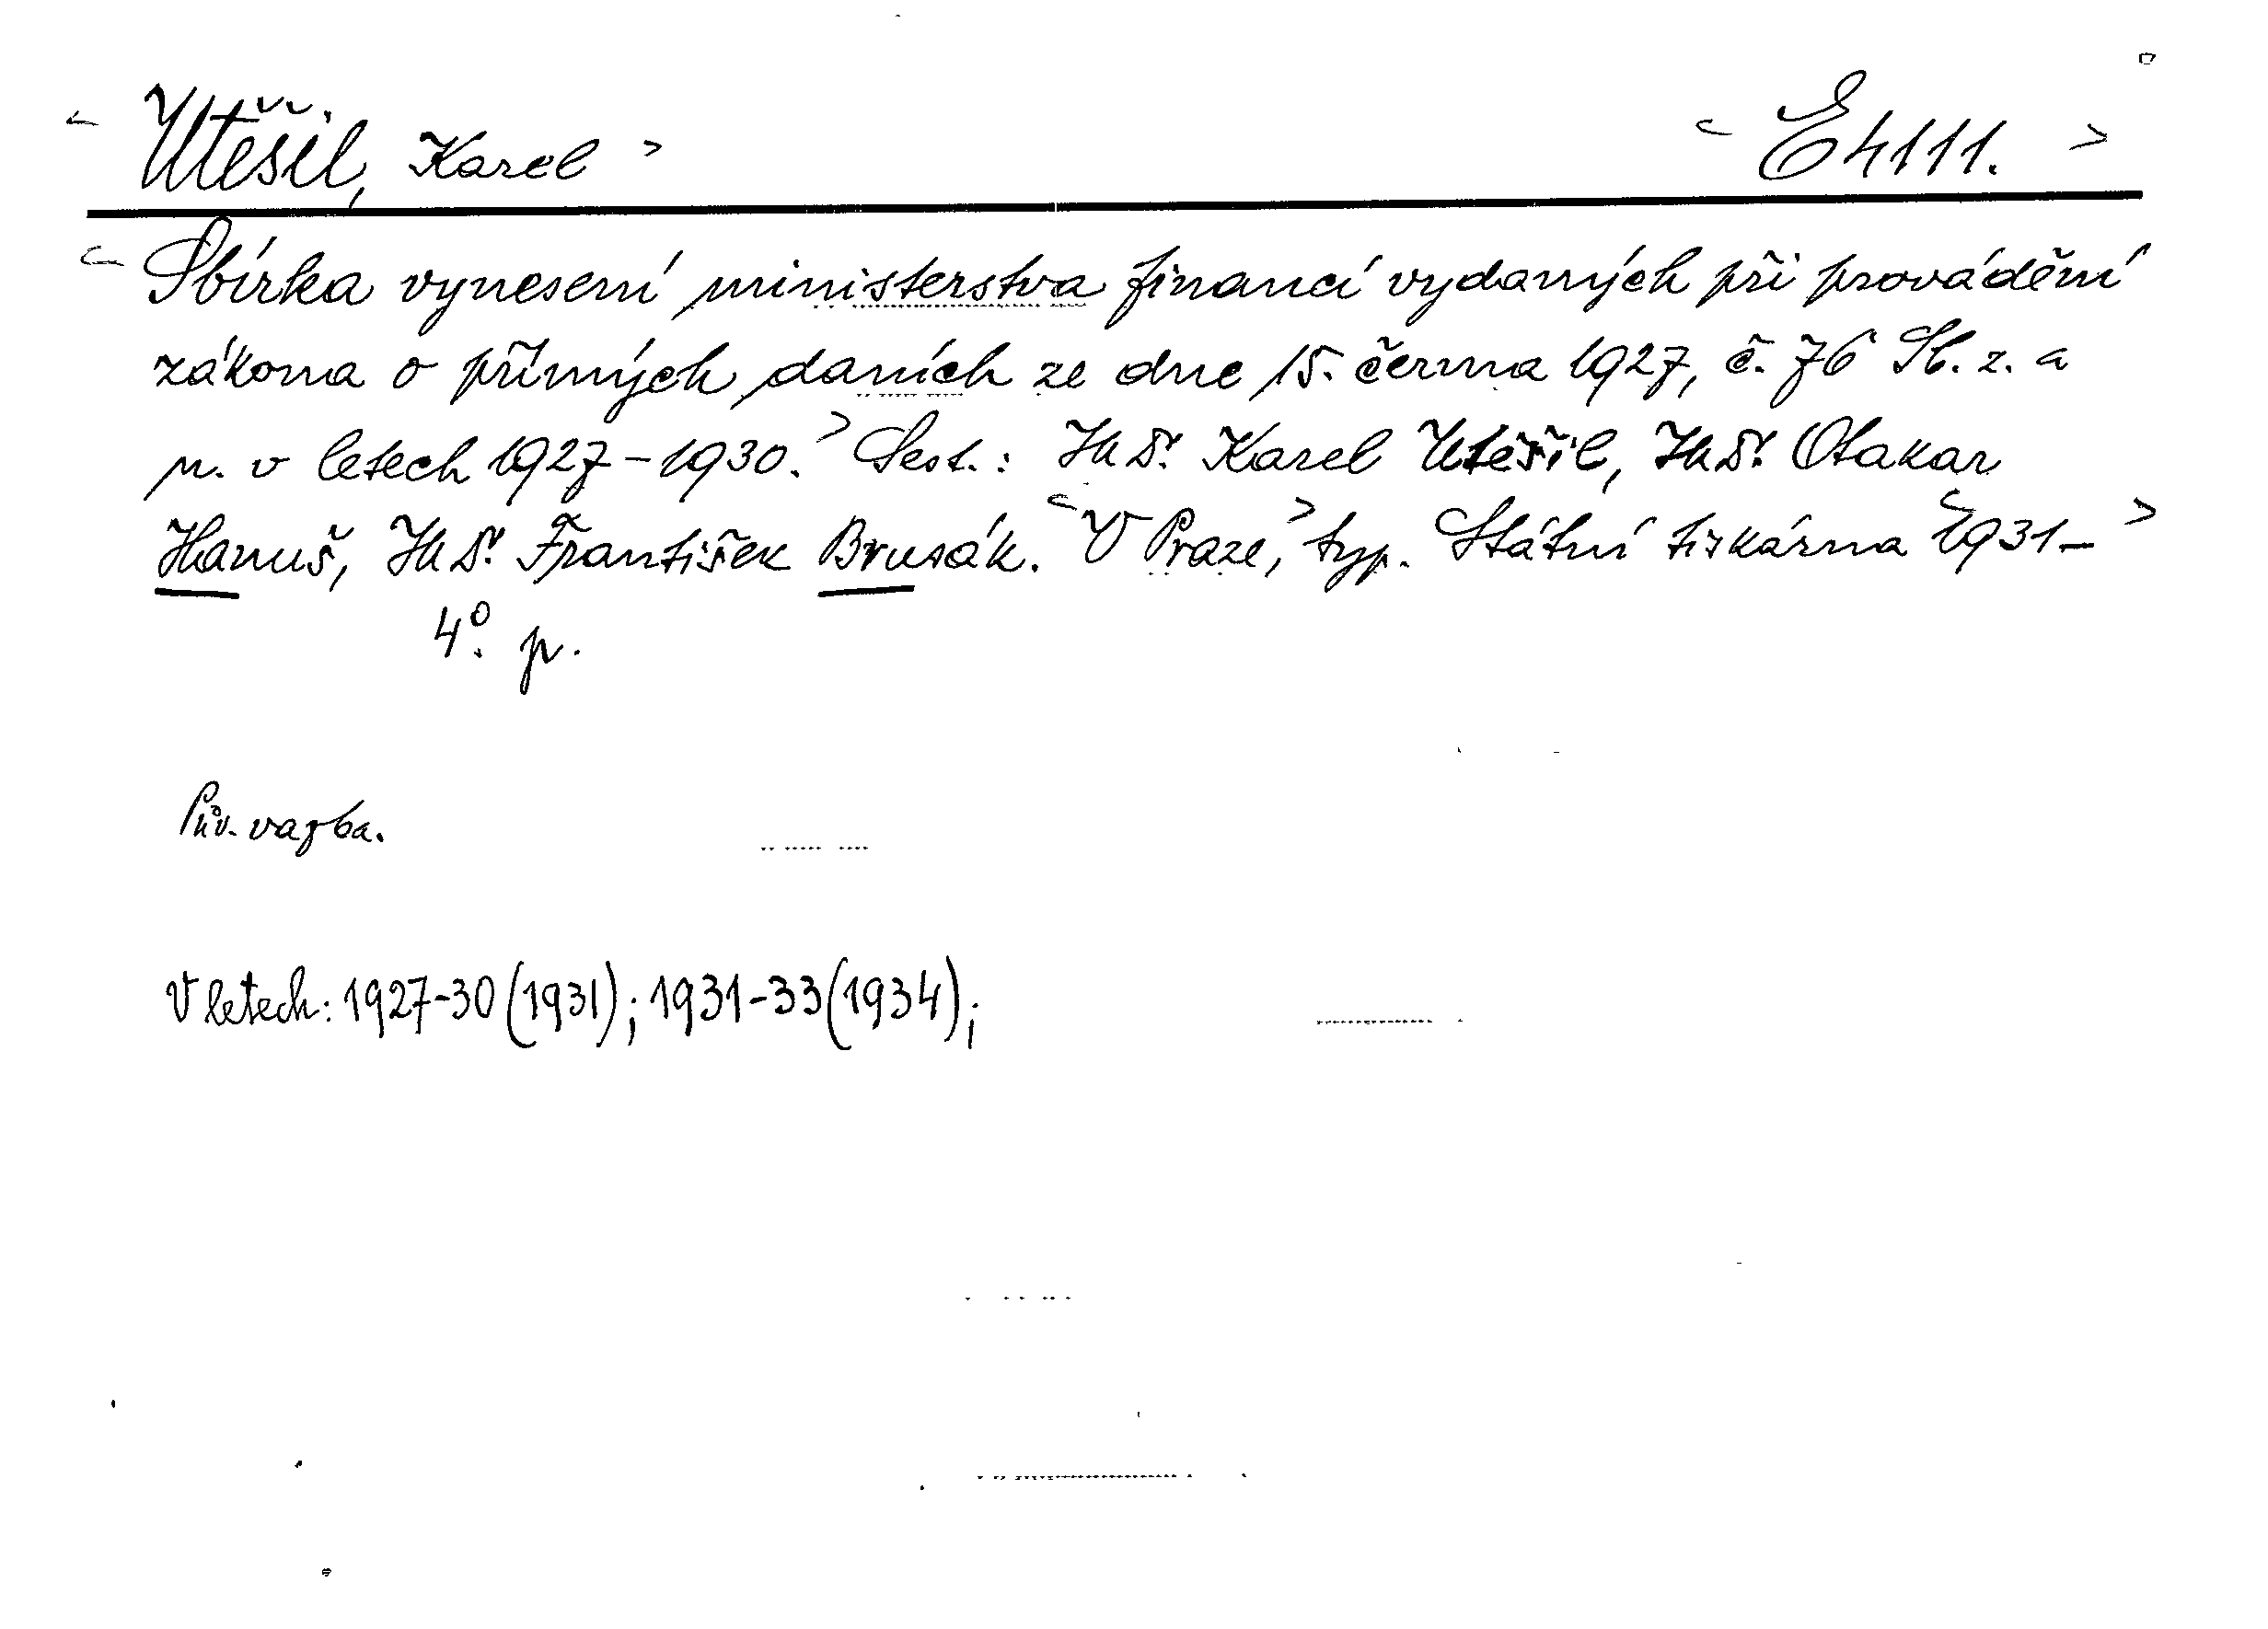 < Utěšil, Karel > < E 4111. >
< Sbírka vynesení ministerstva financí vydaných při provádění
zákona o přímých daních ze dne 15. června 1927, č. 76 Sb. z. a
n. v letech 1927-1930. > Sest.: JUDr. Karel Utěšil, JUDr. Otakar
Hanuš, JUDr. František Brusák. < V Praze, > typ. Státní tiskárna < 1931- >
4°. p.
Pův. vazba.
V letech: 1927-30 (1931); 1931-33 (1934);